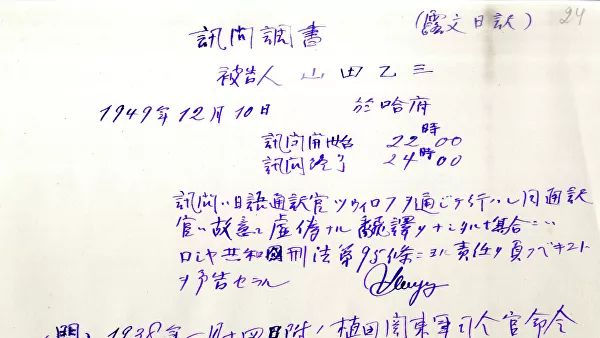 24
(露文日訳)
訊問調書
被告人 山田乙三
1949年12月10日 於哈府
訊問開始 22時00
訊問終了 24時00
訊問ハ日語通訳官ツウイロフヲ通ジテ行ハレ同通訳
官ハ故意ニ虚偽ナル翻譯ヲナシタル場合ニハ
ロシヤ共和国刑法第95條ニヨル責任ヲ負フベキコト
ヲ予告セラル
(問) 1938年一月十四日附ノ植田関東軍司令官命令